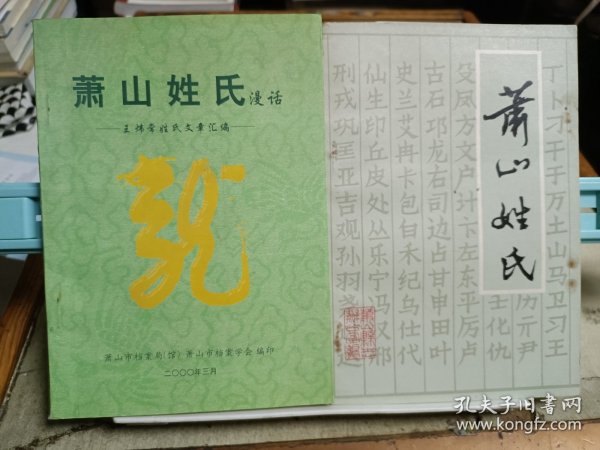 萧山姓氏漫话
萧山市档案局(馆) 萧山市档案学会 编印
二〇〇〇年三月
萧山姓氏
丁卜刁干于万土山马卫习王
历元尹
壬化仇
殳风方文户计卞左东平厉卢
古石邛龙右司边占甘申田叶
史兰艾冉卡包白禾纪乌仕代
仙生印丘皮处丛乐宁冯汉邢
刑戎巩匡亚吉观孙羽
孔夫子旧书网
kongfz.com